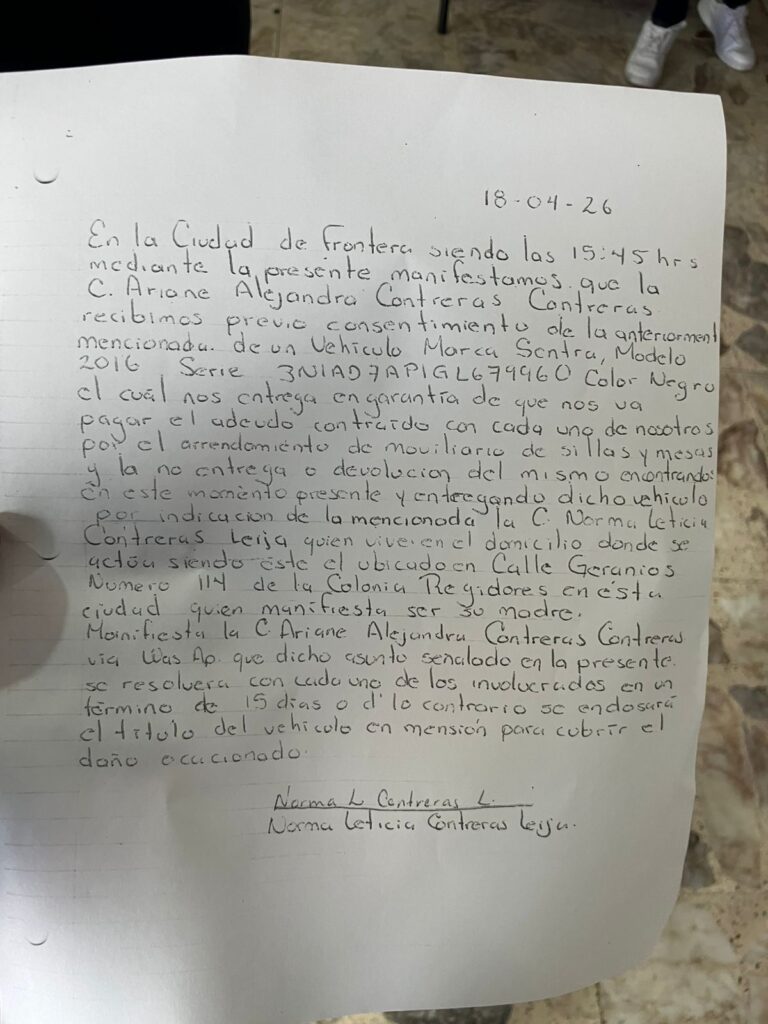 18-04-26
En la Ciudad de Frontera siendo las 15:45 hrs
mediante la presente manifestamos. que la
C. Ariane Alejandra Contreras Contreras.
recibimos previo consentimiento de la anteriorment
mencionada. de un Vehiculo Marca Sentra, Modelo
2016 Serie 3N1AD7AP1GL679960 Color Negro
el cuál nos entrega en garantía de que nos va
pagar el adeudo contraido con cada uno de nosotros
por el arrendamiento de moviliario de sillas y mesas
y la no entrega o devolucion del mismo encontrando:
en este momento presente y entregando dicho vehiculo
por indicacion de la mencionada la C. Norma Leticia
Contreras Leija quien vive en el domicilio donde se
actúa siendo éste el ubicado en Calle Geranios
Numero 114 de la Colonia Regidores en ésta
ciudad quien manifiesta ser su madre.
Manifiesta la C. Ariane Alejandra Contreras Contreras
via Was Ap. que dicho asunto señalado en la presente.
se resolvera con cada uno de los involucrados en un
término de 15 dias o d' lo contrario se endosará
el titulo del vehiculo en mensión para cubrir el
daño ocacionado.
Norma L Contreras L.
Norma Leticia Contreras Leija.